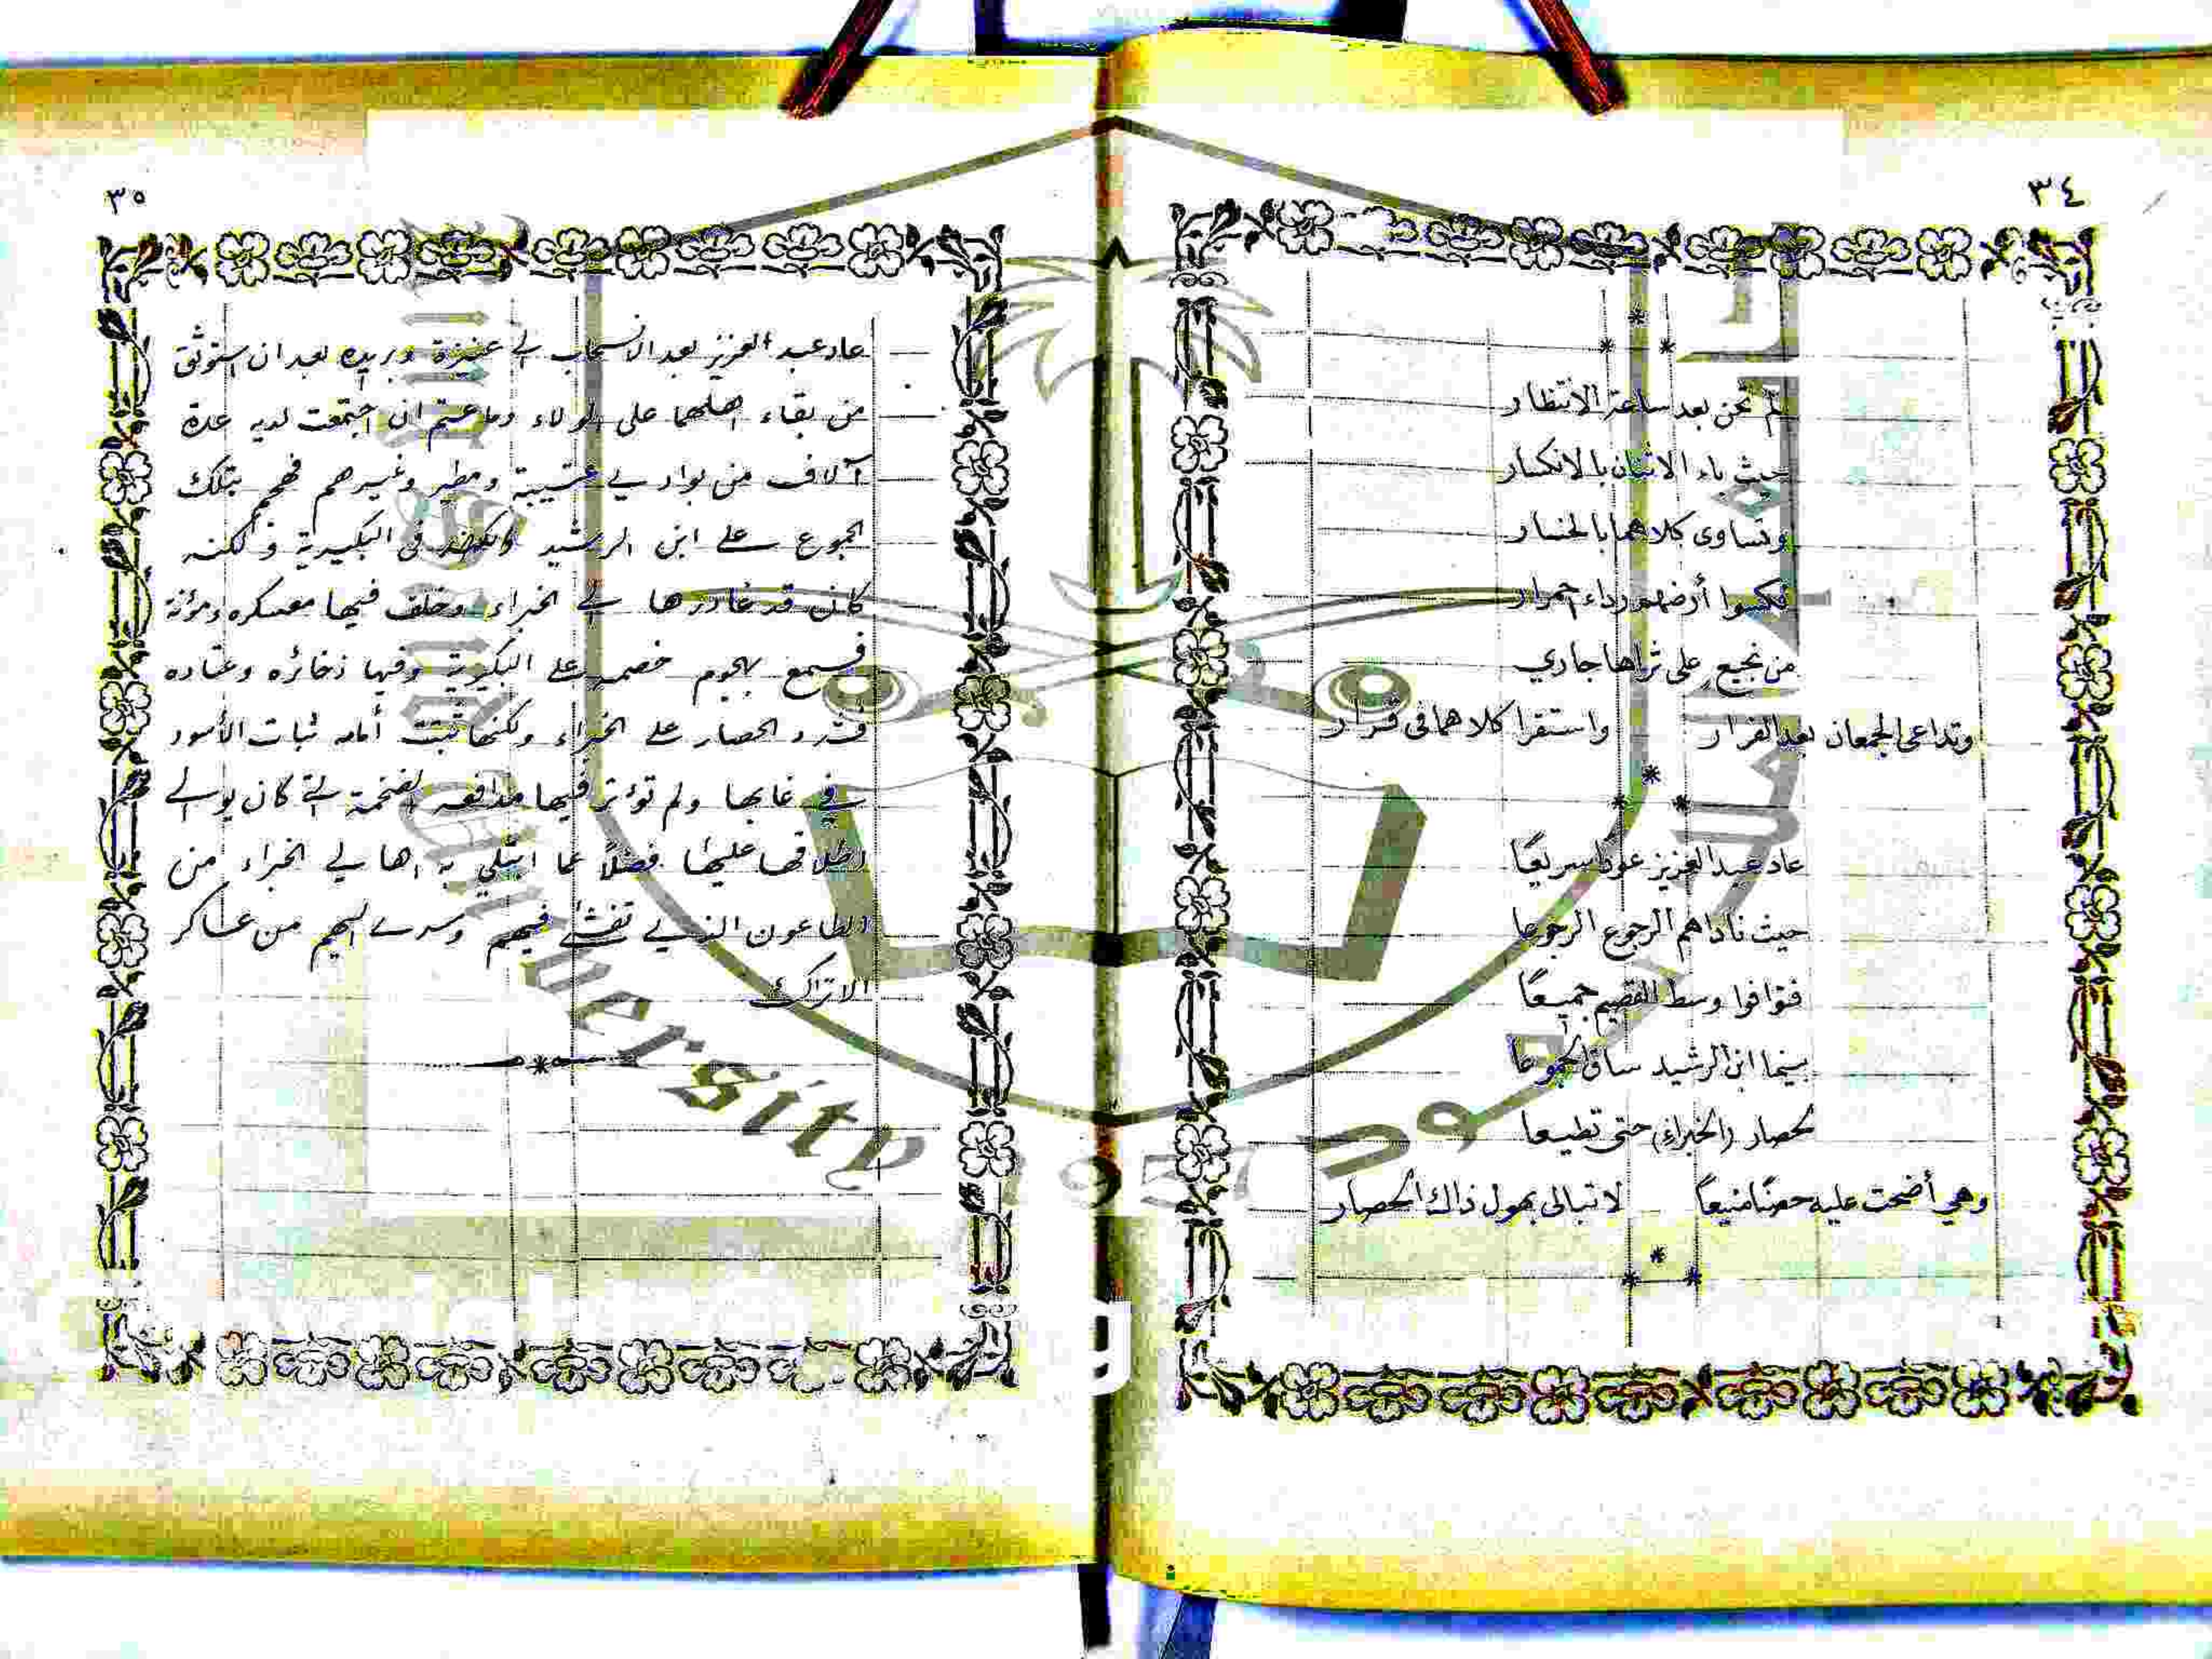 ٣٤
لم تحن بعد ساعة الانتظار
حيث باء الاثنان بالانكسار
وتساوى كلاهما بالخسار
فكسوا أرضهم رداء احمرار
من نجيع على ثراها جاري
وتداعى الجمعان بعد الفرار واستقرا كلاهما فى قرار
عاد عبد العزيز عودا سريعًا
حيث ناداهم الرجوع الرجوعا
فتوافوا وسط القصيم جميعًا
بينما ابن الرشيد ساق الجموعا
لحصار (الخبراء) حتى تطيعا
وهي أضحت عليه حصنًا منيعًا لا تبالى بهول ذاك الحصار
٣٥
عاد عبد العزيز بعد الانسحاب الى عنيزة وبريده بعد ان استوثق
من بقاء اهلهما على الولاء وما عتم ان اجتمعت لديه عدة
آلاف من بوادي عتيبة ومطير وغيرهم فهجم بتلك
الجموع على ابن الرشيد فى البكيرية ولكنه
كان قد غادرها الى الخبراء وخلف فيها معسكره ومؤنة
فسمع بهجوم خصمه على البكيرية وفيها ذخائره وعتاده
الحصار على الخبراء ولكنها ثبتت أمامه ثبات الأسود
في غابها ولم تؤثر فيها مدافعه الضخمة التي كان يوالي
اطلاقها عليها فضلاً عما ابتلي به اهالي الخبراء من
الطاعون الذي تفشى فيهم وسرى اليهم من عساكر
الاتراك
University
1957